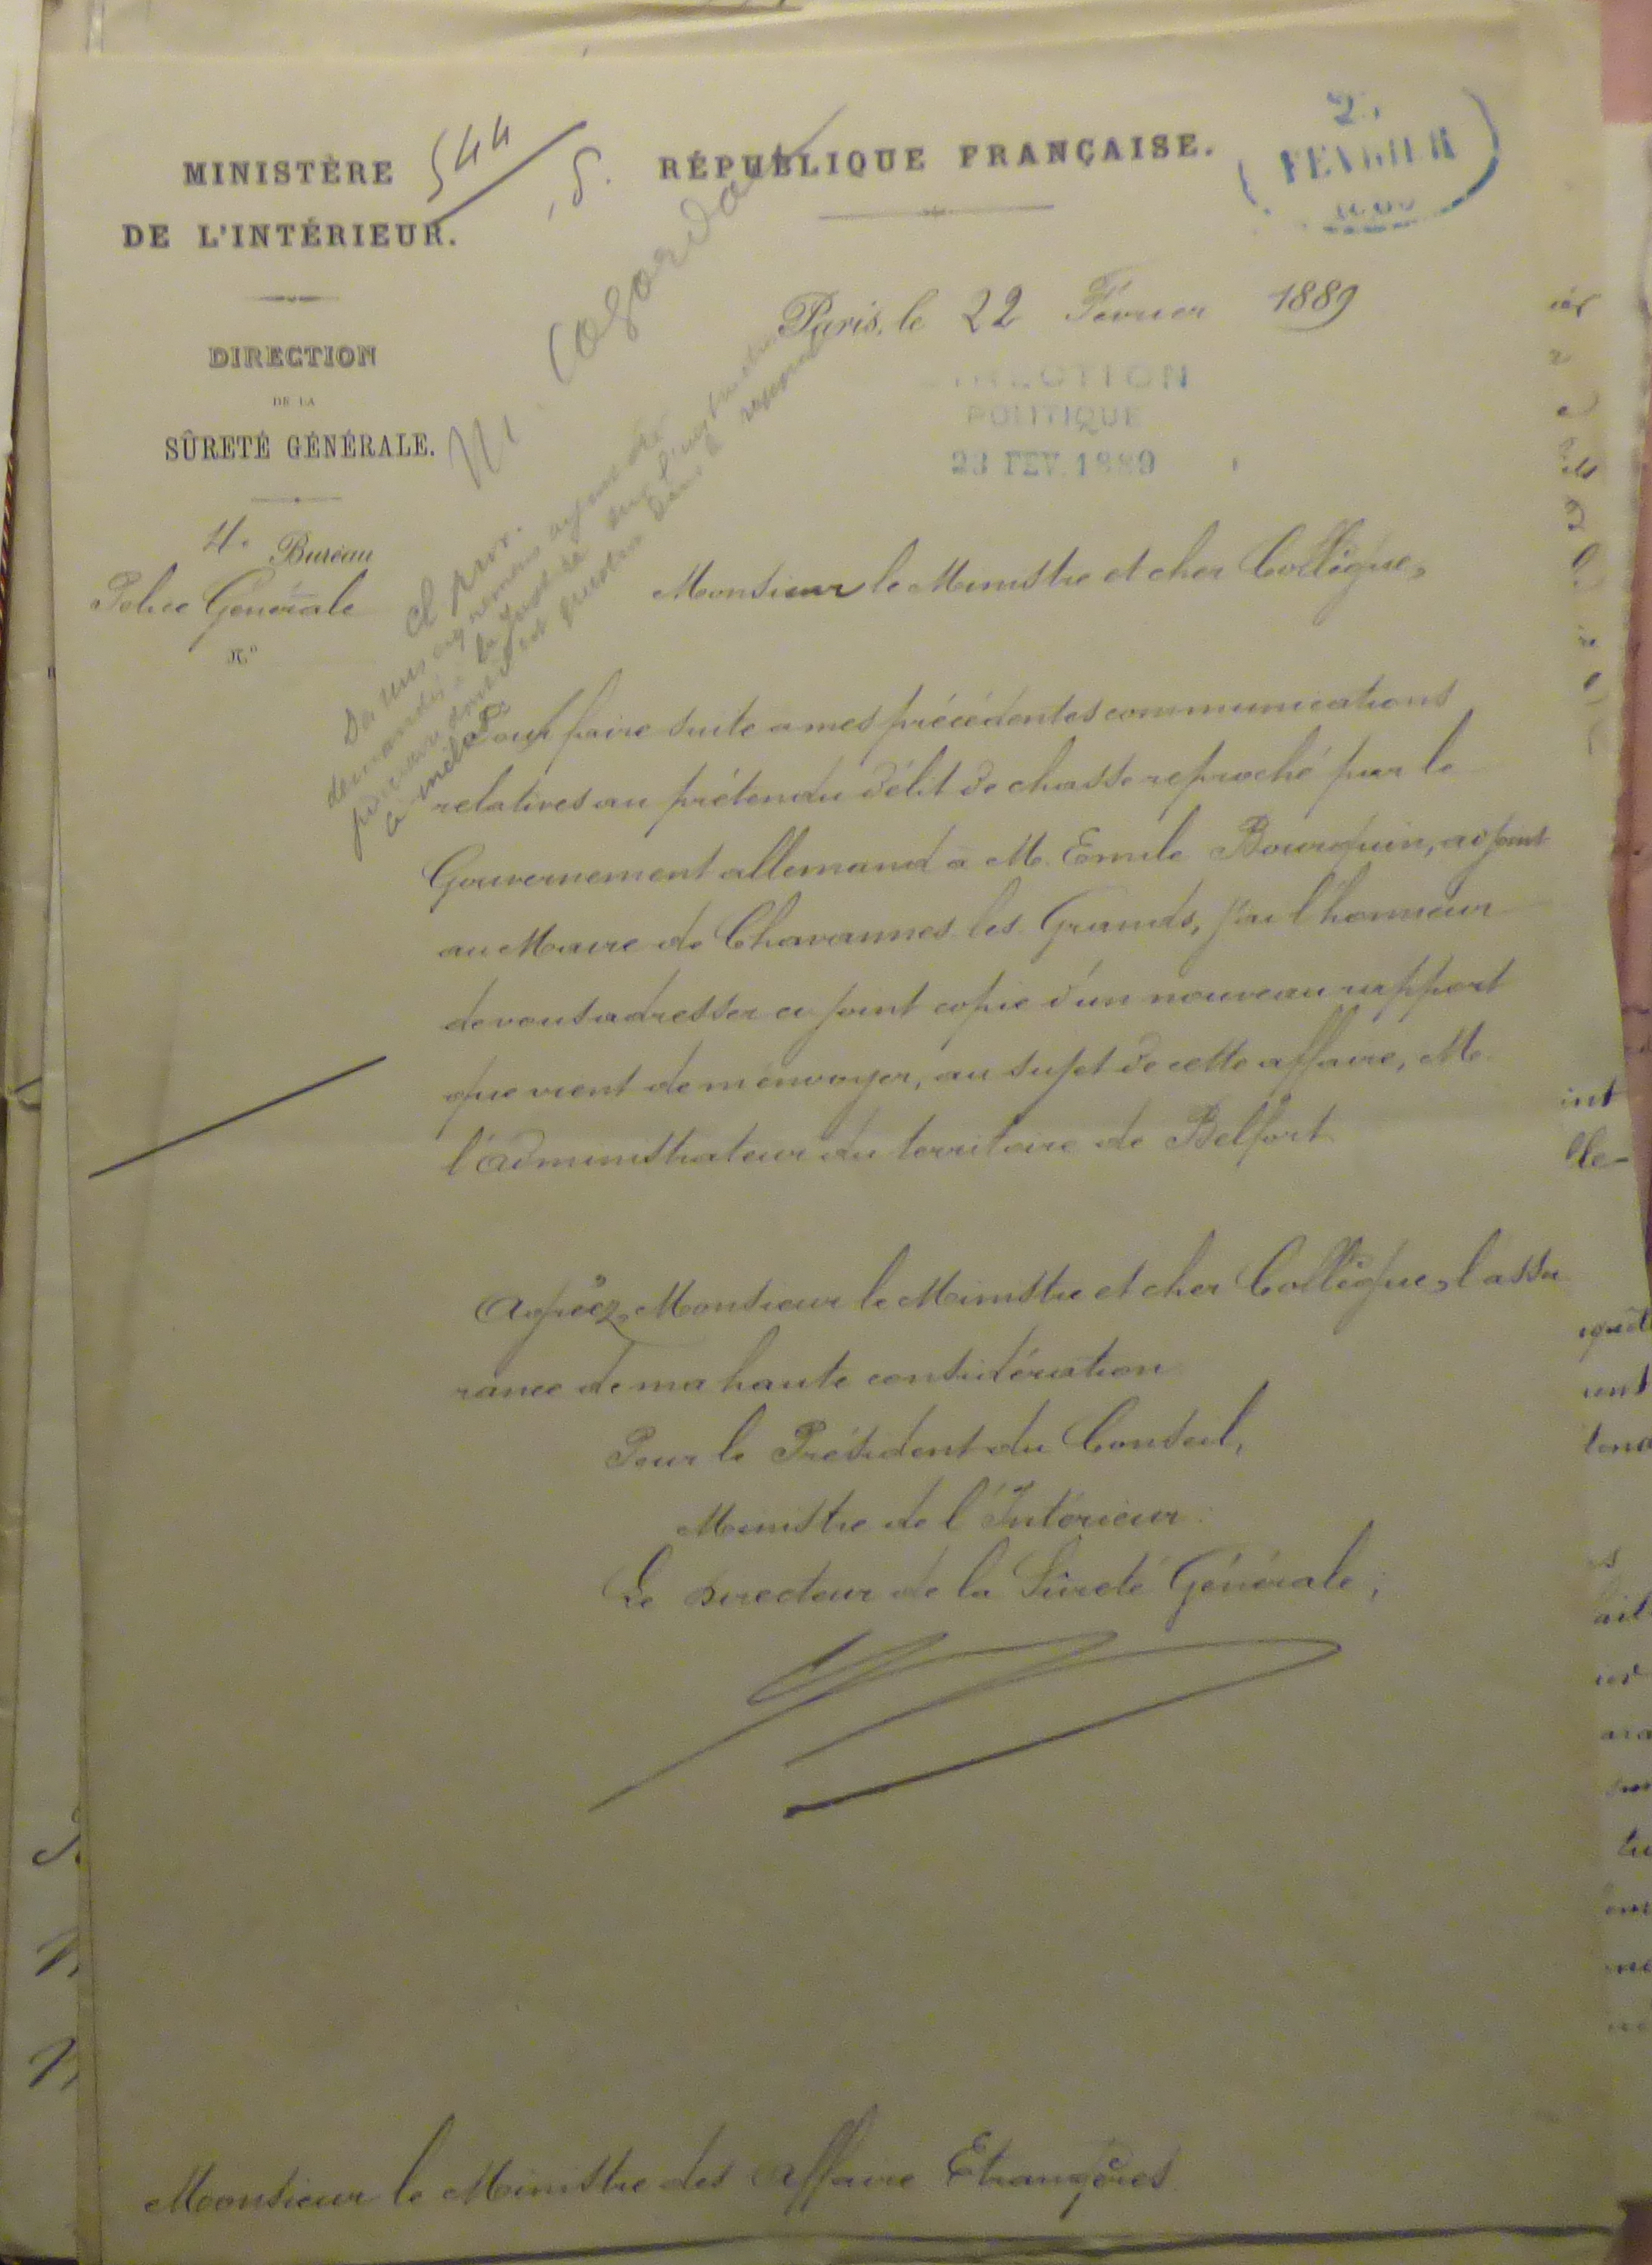 MINISTÈRE
DE L'INTÉRIEUR.
544
RÉPUBLIQUE FRANÇAISE.
FEVRIER
DIRECTION
DE LA
SÛRETÉ GÉNÉRALE.
4e Bureau
Police Générale
N°
Paris, le 22 Février 1889
DIRECTION
POLITIQUE
23 FEV. 1889
M. Cogordan
Des renseignements ayant été
Monsieur le Ministre et cher Collègue,
Pour faire suite a mes précédentes communications
relatives au prétendu délit de chasse reproché par le
Gouvernement allemand a M. Emile Bourquin, adjoint
au Maire de Chavannes les Grands, j'ai l'honneur
de vous adresser ci joint copie d'un nouveau rapport
que vient de m'envoyer, au sujet de cette affaire, M.
l'Administrateur du territoire de Belfort
Agréez, Monsieur le Ministre et cher Collègue, l'assu
rance de ma haute considération
Pour le Président du Conseil,
Ministre de l'Intérieur
Le Directeur de la Sûreté Générale,
Monsieur le Ministre des Affaire Etrangères